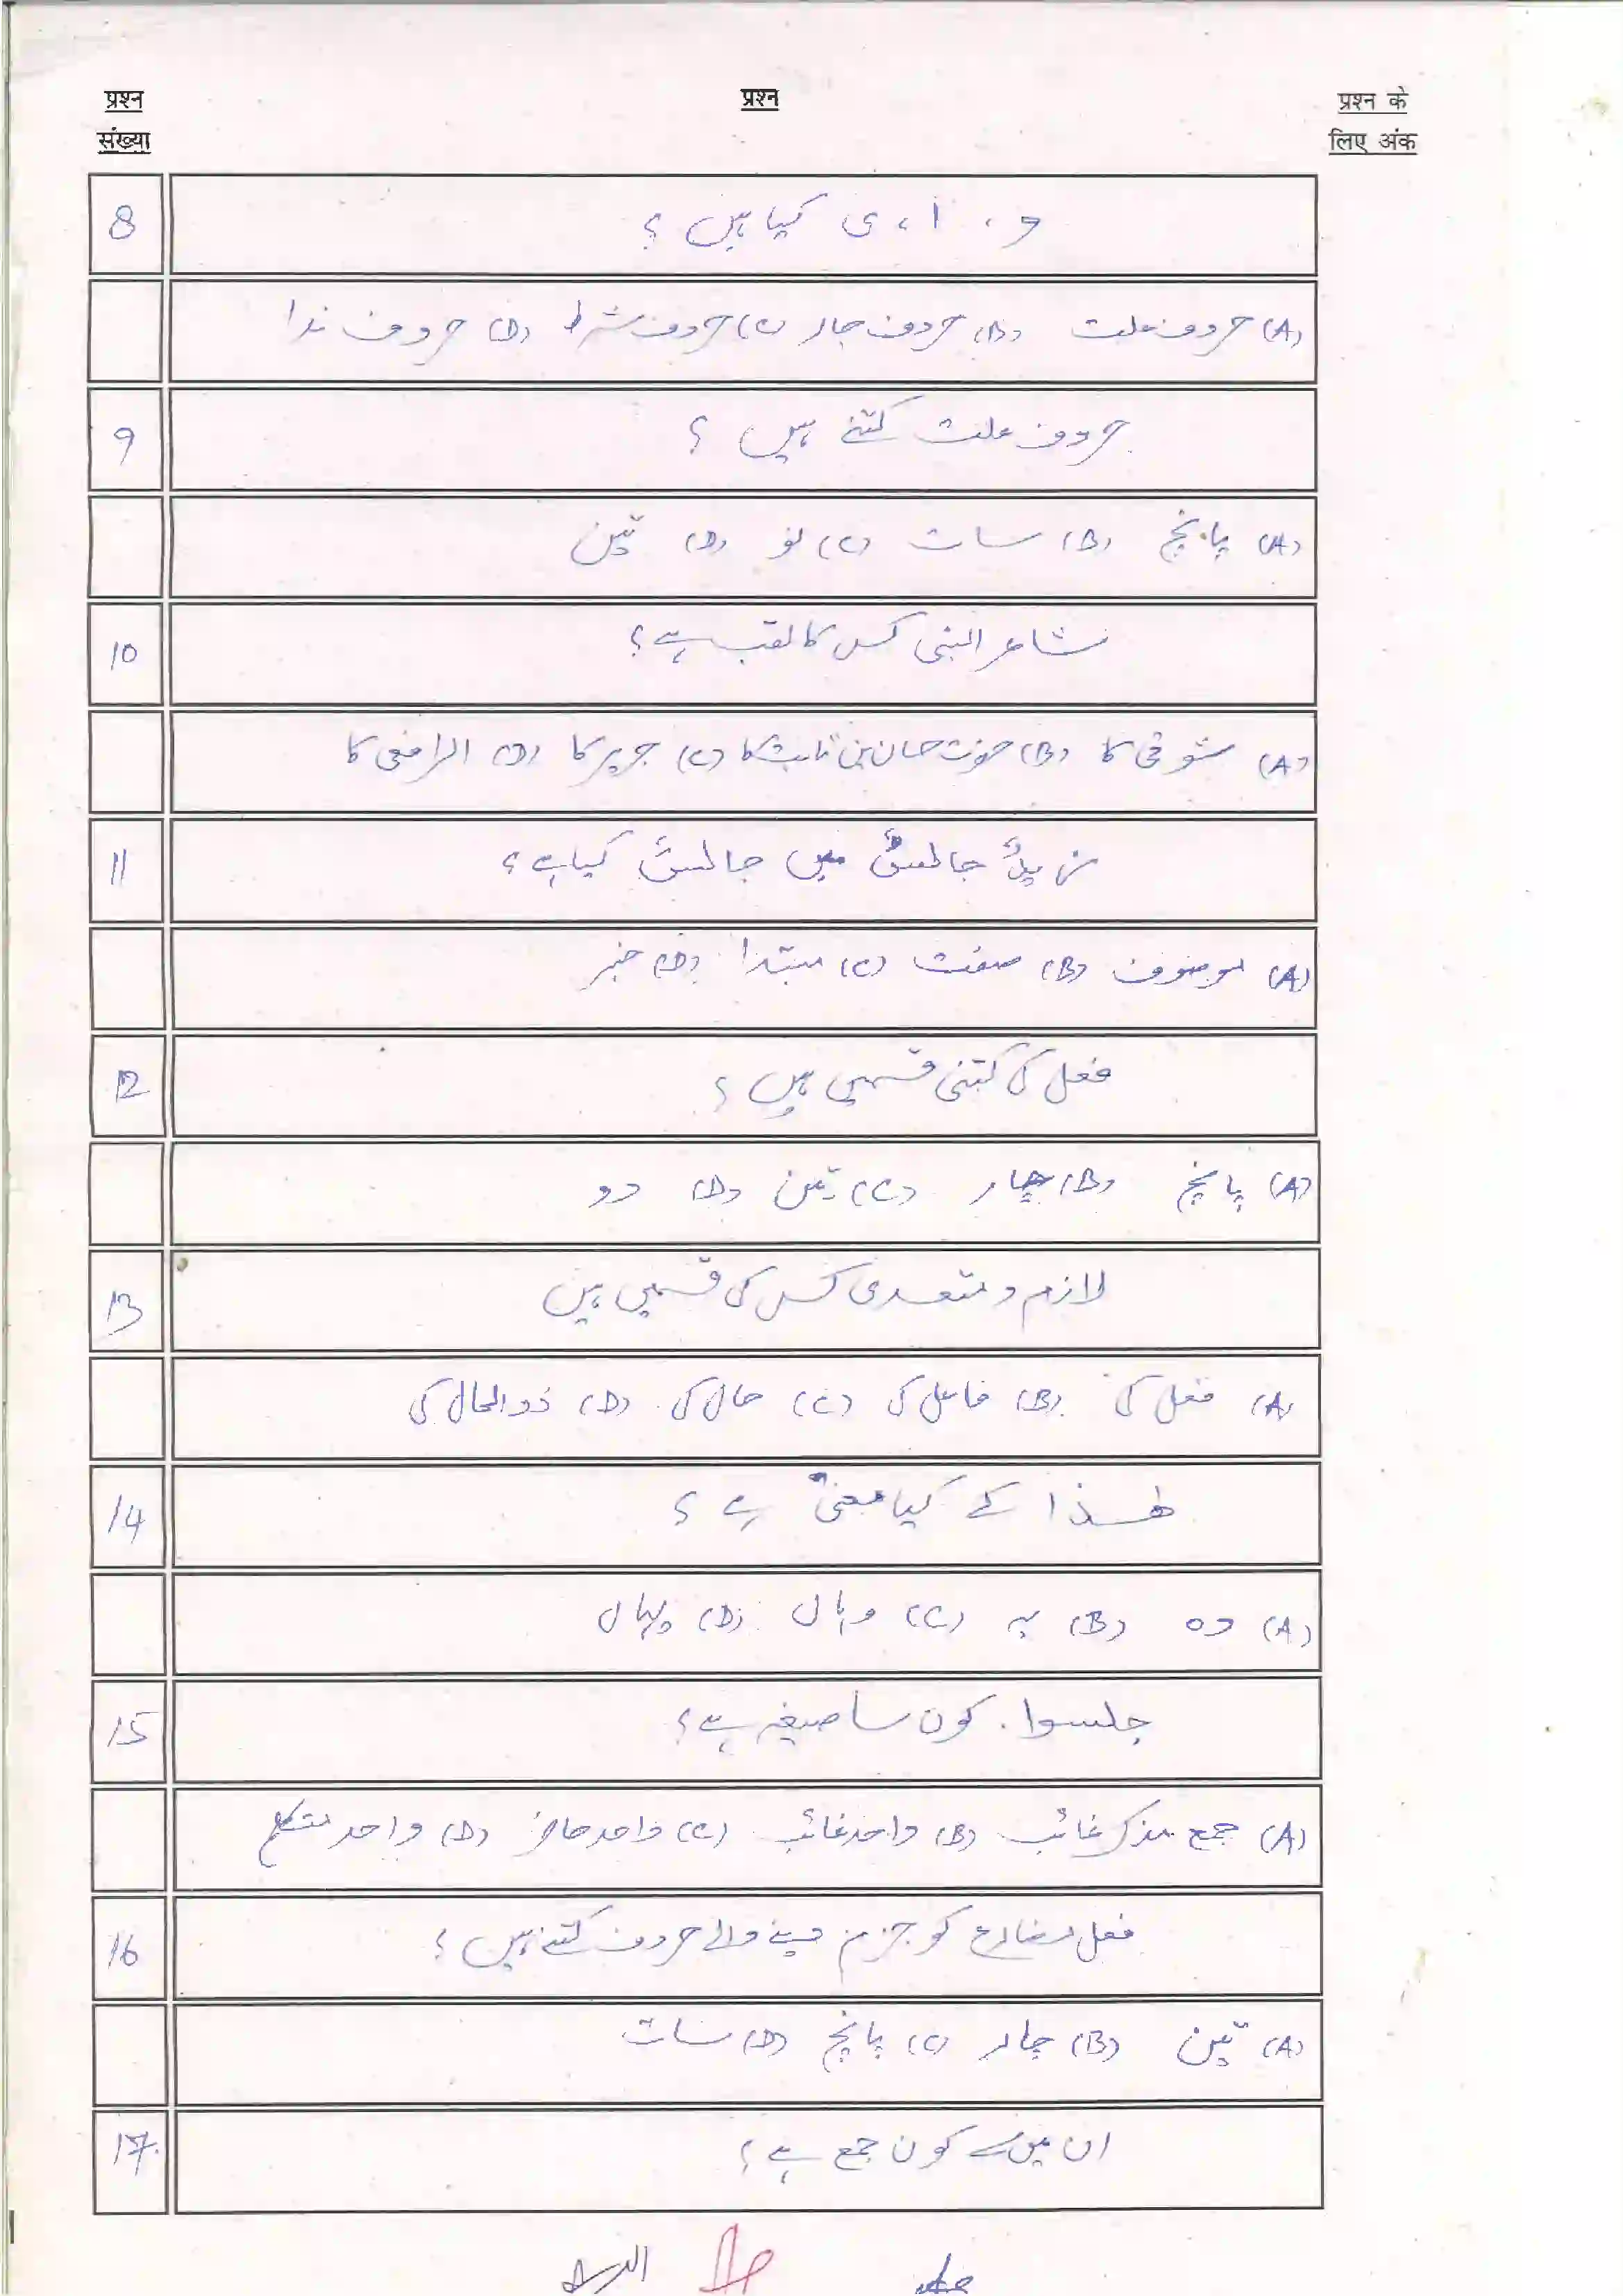 प्रश्न संख्या
प्रश्न
प्रश्न के लिए अंक
8 و ، ا ، ی کیا ہیں ؟
(A) حروف علت (B) حروف جار (C) حروف شرط (D) حروف ندا
9 حروف علت کتنے ہیں ؟
(A) پانچ (B) سات (C) نو (D) تین
10 شاعر النبی کس کا لقب ہے ؟
(A) شوقی کا (B) حضرت حسان بن ثابت کا (C) جریر کا (D) الرافعی کا
11 زیدٌ جالسٌ میں جالسٌ کیا ہے ؟
(A) موصوف (B) صفت (C) مبتدا (D) خبر
12 فعل کی کتنی قسمیں ہیں ؟
(A) پانچ (B) چار (C) تین (D) دو
13 لازم و متعدی کس کی قسمیں ہیں
(A) فعل کی (B) فاعل کی (C) حال کی (D) ذوالحال کی
14 ھذا کے کیا معنی ہے ؟
(A) وہ (B) یہ (C) وہاں (D) یہاں
15 جلسوا . کون سا صیغہ ہے ؟
(A) جمع مذکر غائب (B) واحد غائب (C) واحد حاضر (D) واحد متکلم
16 فعل مضارع کو جزم دینے والے حروف کتنے ہیں ؟
(A) تین (B) چار (C) پانچ (D) سات
17. ان میں سے کون جمع ہے ؟